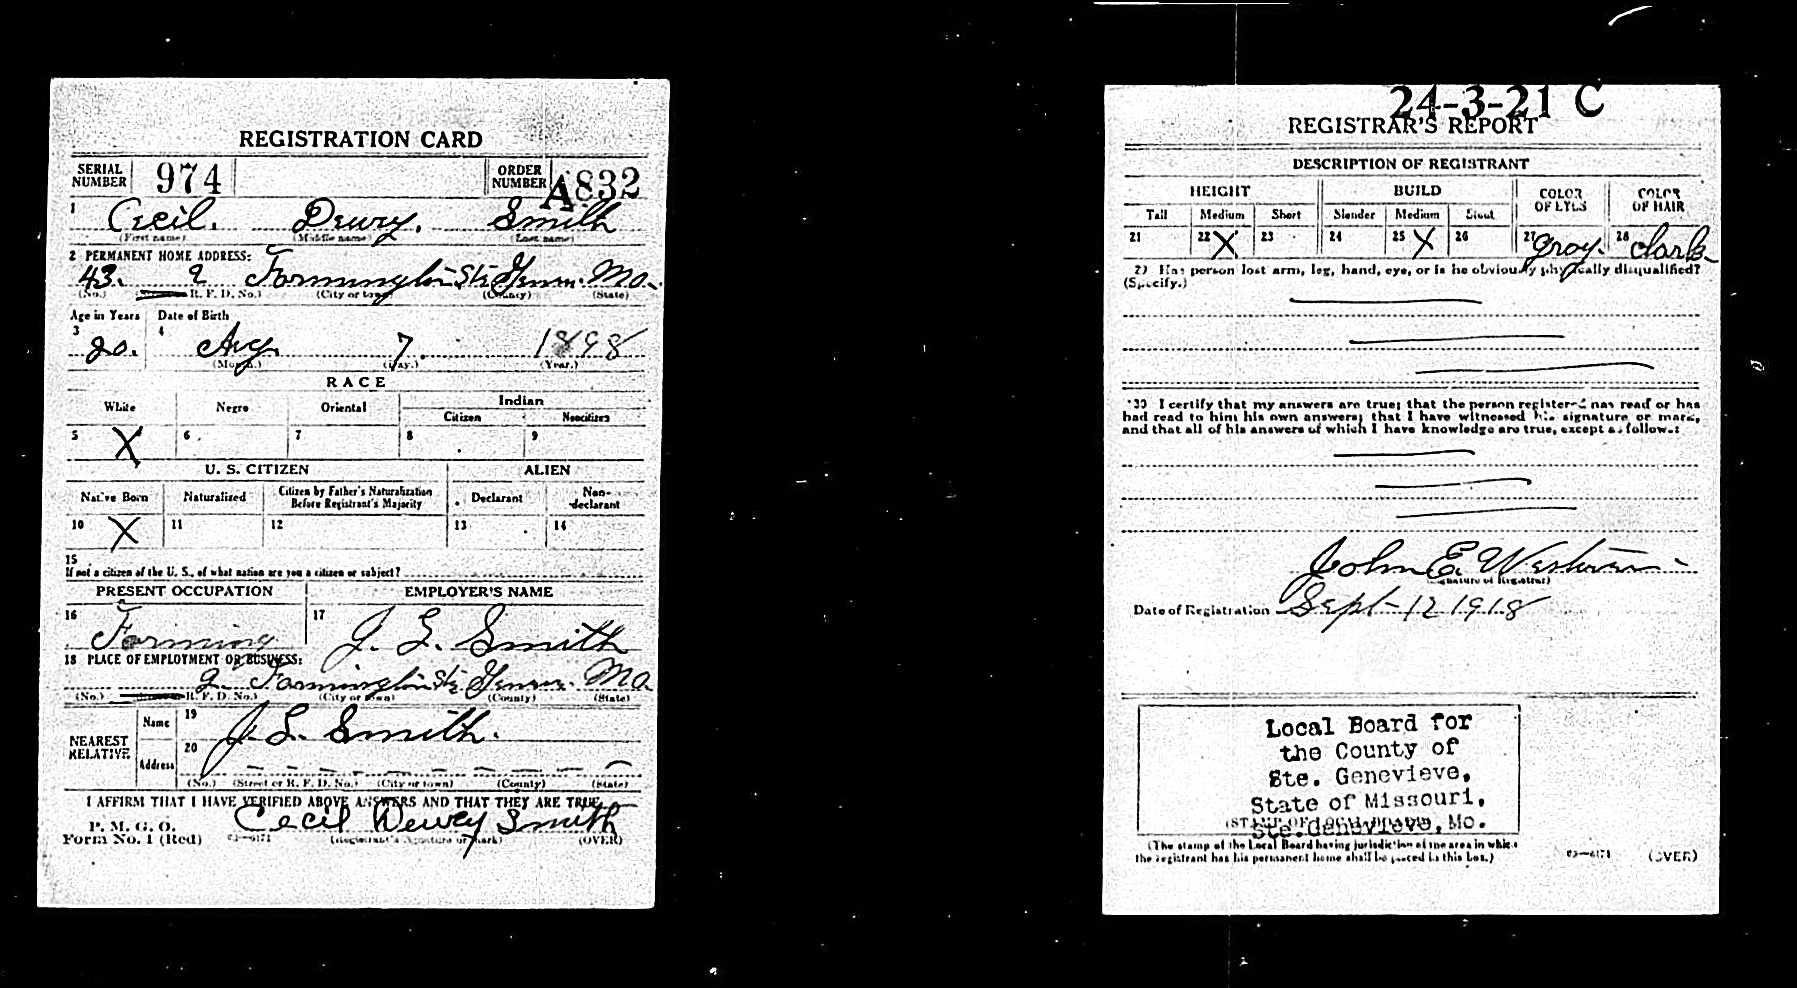 REGISTRATION CARD
SERIAL NUMBER 974 ORDER NUMBER A832
1 Cecil. Dewry. Smith
(First name) (Middle name) (Last name)
2 PERMANENT HOME ADDRESS:
43. 2 Farmington Ste Genev. Mo.
(No.) R. F. D. No.) (City or town) (County) (State)
Age in Years Date of Birth
3 20. 4 Aug. 7. 1898
(Month.) (Day.) (Year.)
RACE
White Negro Oriental Indian
Citizen Noncitizen
5 X 6 7 8 9
U. S. CITIZEN ALIEN
Native Born Naturalized Citizen by Father's Naturalization Before Registrant's Majority Declarant Non-declarant
10 X 11 12 13 14
15
If not a citizen of the U. S., of what nation are you a citizen or subject?
PRESENT OCCUPATION EMPLOYER'S NAME
16 Farming 17 J. L. Smith
18 PLACE OF EMPLOYMENT OR BUSINESS:
2 Farmington Ste Genev. Mo.
(No.) R. F. D. No.) (City or town) (County) (State)
NEAREST RELATIVE Name 19 J. L. Smith.
Address 20
(No.) (Street or R. F. D. No.) (City or town) (County) (State)
I AFFIRM THAT I HAVE VERIFIED ABOVE ANSWERS AND THAT THEY ARE TRUE
P. M. G. O.
Form No. 1 (Red) 03—6171 Cecil Dewey Smith
(Registrant's signature or mark) (OVER)
24-3-21 C
REGISTRAR'S REPORT
DESCRIPTION OF REGISTRANT
HEIGHT BUILD COLOR OF EYES COLOR OF HAIR
Tall Medium Short Slender Medium Stout
21 22 X 23 24 25 X 26 27 gray. 28 dark
29 Has person lost arm, leg, hand, eye, or is he obviously physically disqualified?
(Specify.)
30 I certify that my answers are true; that the person registered has read or has
had read to him his own answers; that I have witnessed his signature or mark,
and that all of his answers of which I have knowledge are true, except as follows:
John E.
(Signature of Registrar)
Date of Registration Sept-12 1918
Local Board for
the County of
Ste. Genevieve,
State of Missouri,
(STAMP OF LOCAL BOARD)
Ste.Genevieve, Mo.
(The stamp of the Local Board having jurisdiction of the area in which
the registrant has his permanent home shall be placed in this box.)
03—6171 (OVER)